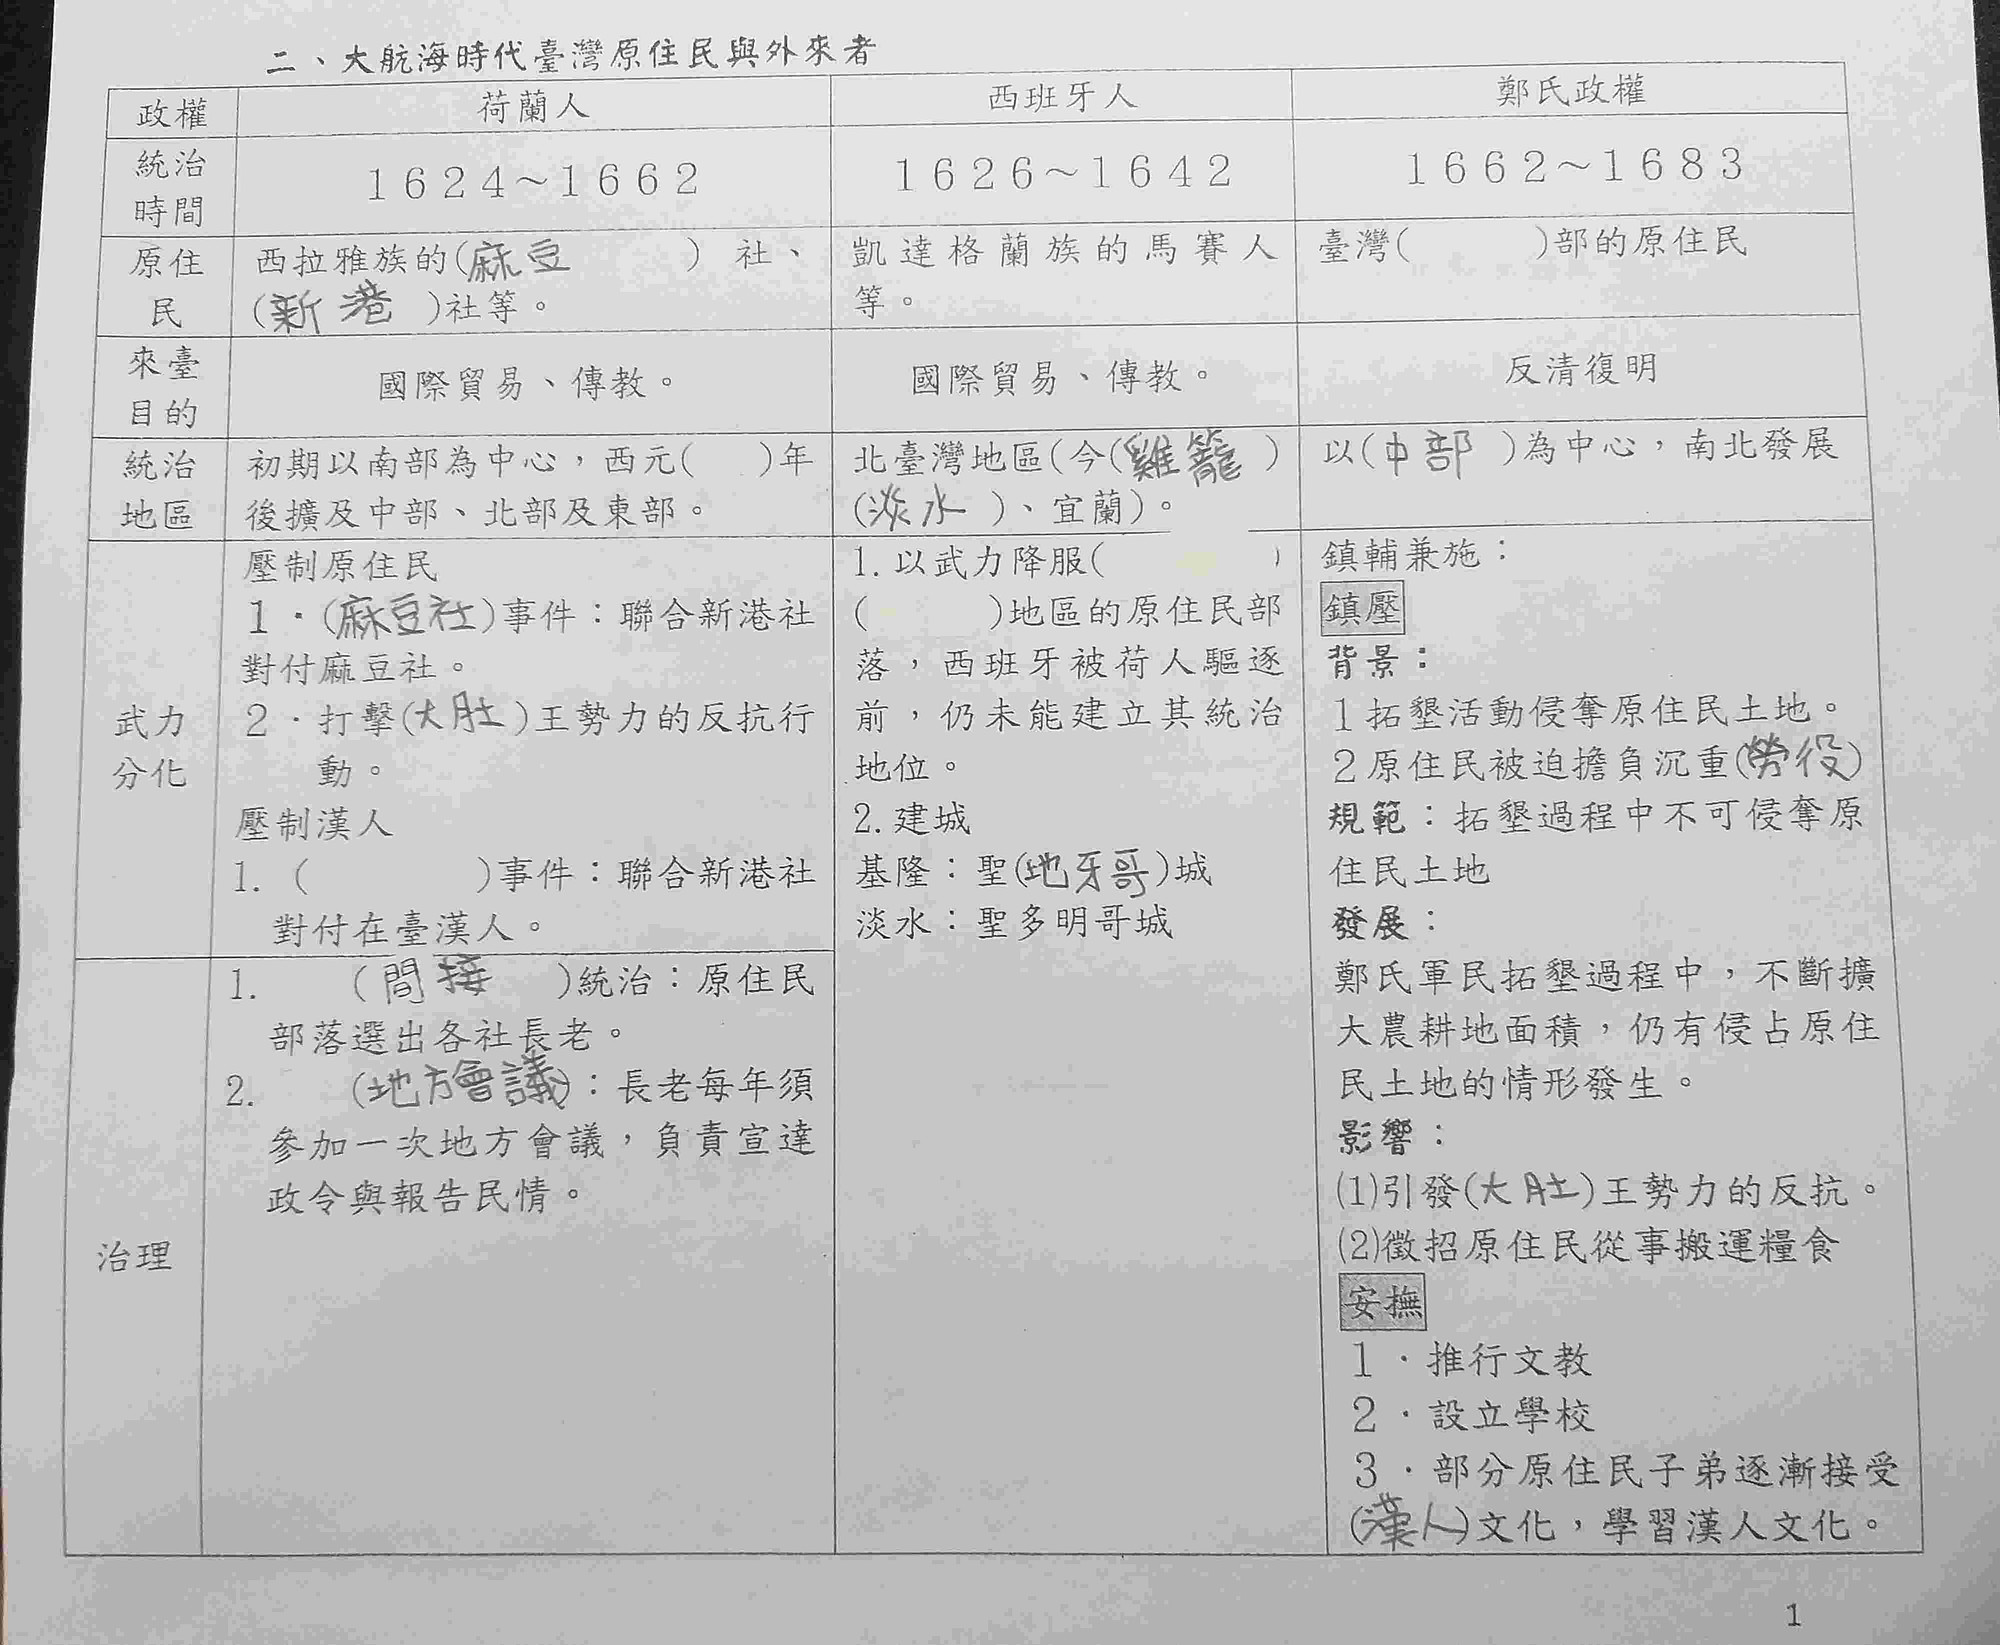 二、大航海時代臺灣原住民與外來者
政權
荷蘭人
西班牙人
鄭氏政權
統治
時間
1624~1662
1626~1642
1662~1683
原住
民
西拉雅族的(麻豆 ) 社、
(新港 )社等。
凱達格蘭族的馬賽人
等。
臺灣( )部的原住民
來臺
目的
國際貿易、傳教。
國際貿易、傳教。
反清復明
統治
地區
初期以南部為中心，西元( )年
後擴及中部、北部及東部。
北臺灣地區(今(雞籠 )
(淡水 )、宜蘭)。
以(中部 )為中心，南北發展
武力
分化
壓制原住民
1．(麻豆社)事件：聯合新港社
對付麻豆社。
2．打擊(大肚)王勢力的反抗行
動。
壓制漢人
1. ( )事件：聯合新港社
對付在臺漢人。
1. 以武力降服( )
( )地區的原住民部
落，西班牙被荷人驅逐
前，仍未能建立其統治
地位。
2. 建城
基隆：聖(地牙哥)城
淡水：聖多明哥城
鎮輔兼施：
鎮壓
背景：
1拓墾活動侵奪原住民土地。
2原住民被迫擔負沉重(勞役)
規範：拓墾過程中不可侵奪原
住民土地
發展：
鄭氏軍民拓墾過程中，不斷擴
大農耕地面積，仍有侵占原住
民土地的情形發生。
影響：
(1)引發(大肚)王勢力的反抗。
(2)徵招原住民從事搬運糧食
安撫
1．推行文教
2．設立學校
3．部分原住民子弟逐漸接受
(漢人)文化，學習漢人文化。
治理
1. (間接 )統治：原住民
部落選出各社長老。
2. (地方會議)：長老每年須
參加一次地方會議，負責宣達
政令與報告民情。
1